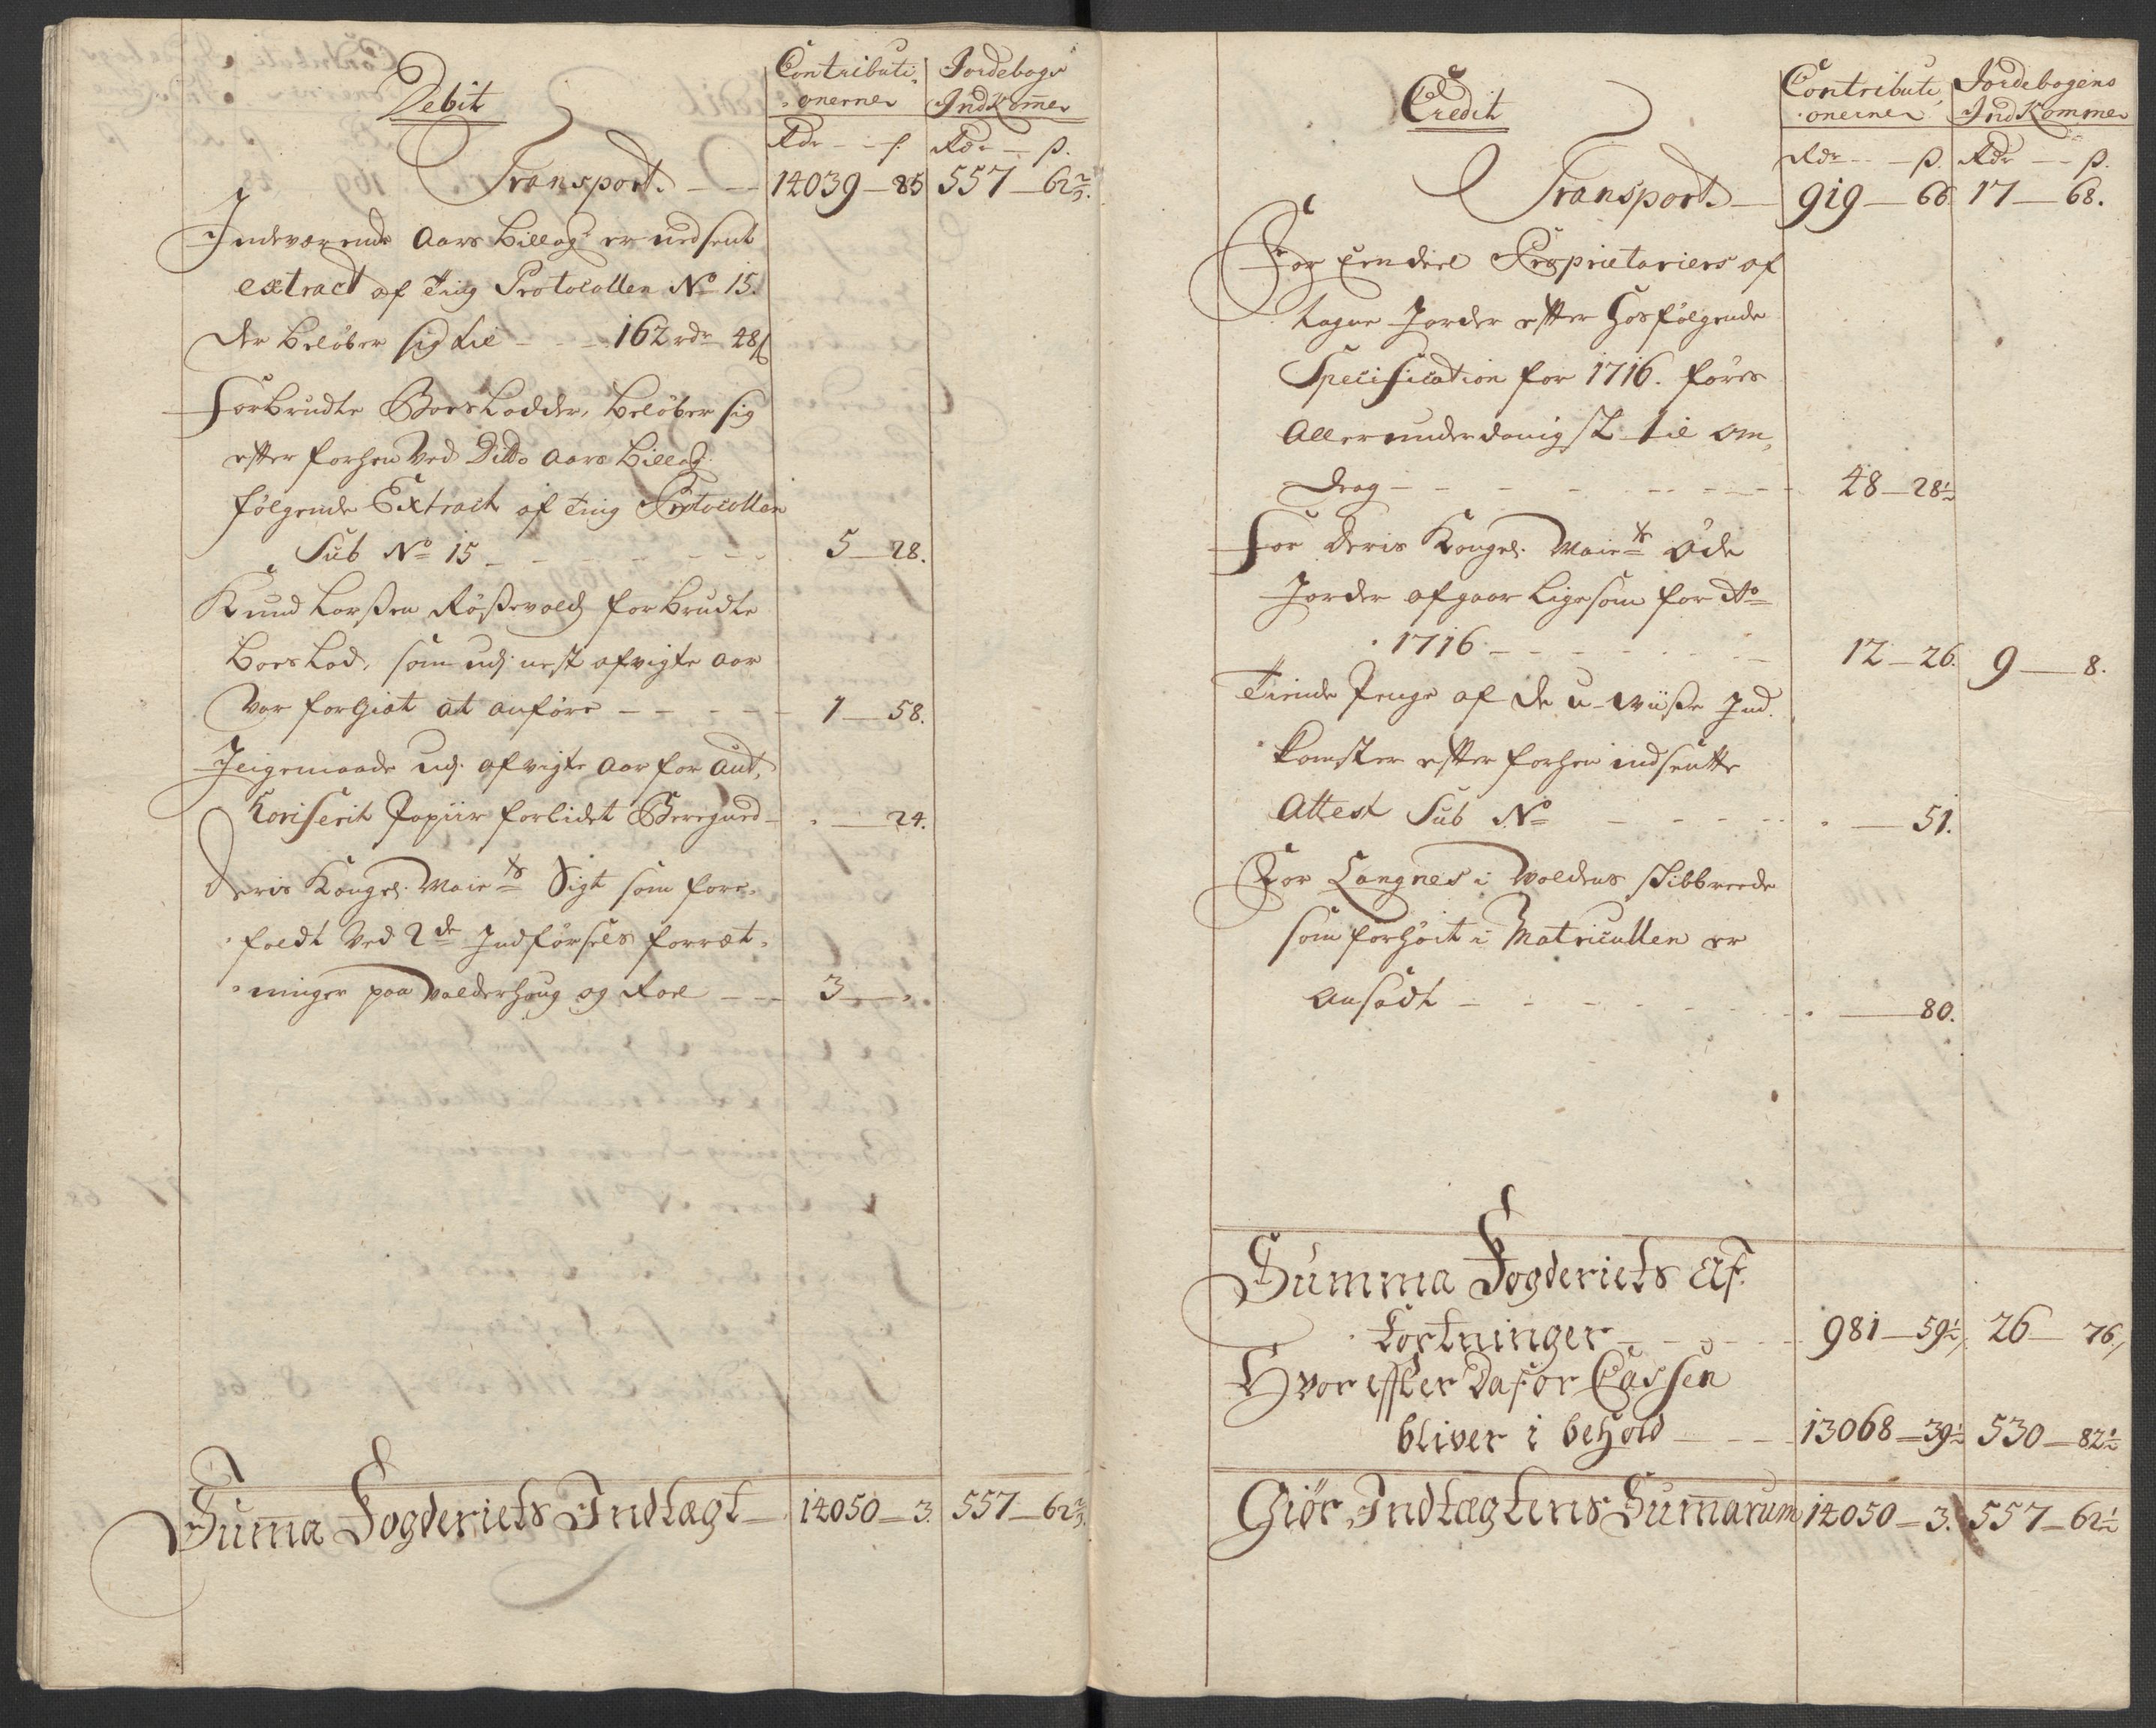 Debit
Contributi-
onerne
Jordebogs
Indkomme
Rdr — ß. Rdr — ß.
Transport — 14039 — 85 557 — 62 2/3.
Indeværende Aars billag er nedsent
extract af Ting Protocollen No 15.
der beløber sig til — 162 rdr 48 ß
Forbrudte Boes Lodder, beløber sig
efter forhen ved Ditto Aars billag
følgende Extract af Ting Protocollen
Sub No 15 — 5 — 28.
Knud Larßen Røßevolds forbrudte
boes Lod, som udj nest afvigte aar
var forgiæt at anføre — 1 — 58.
Jligemaade udj afvigte aar for aut,
horiserit Papiir forlidet Beregned — 24.
Deris Kongel. Maits Sigt som fore-
faldt ved 2de Indførsels forræt-
ninger paa Valderhoug og Roel — 3 —
Suma Fogderiets Indtægt — 14050 — 3. 557 — 62 2/3.
Credit
Contributi-
onerne
Jordebogens
Indkomme
Rdr — ß. Rdr — ß.
Transport — 919 — 66 17 — 68.
For Eendeel Proprietariers af
tagne Jorder efter hosfølgende
Specification for 1716. føres
Allerunderdanigst til an,
drag — 48 — 28 1/2
For Deris Kongel. Maits øde
Jorder afgaar ligesom for Ao
1716 — 12 — 26. 9 — 8.
Tiende Penge af de u-wiiße Ind-
komster efter forhen indsentte
Attest Sub No — 51.
For Langnes i Woldens skibbrede
som forhøit i Matricullen er
ansadt — 80.
Summa Fogderiets Af-
kortninger — 981 — 59 1/2 26 — 76
Hvor effter Dafor Cassen
bliver i behold — 13068 — 39 1/2 530 — 82 1/2
Giør Indtægtens Sumarum 14050 — 3. 557 — 62 1/2